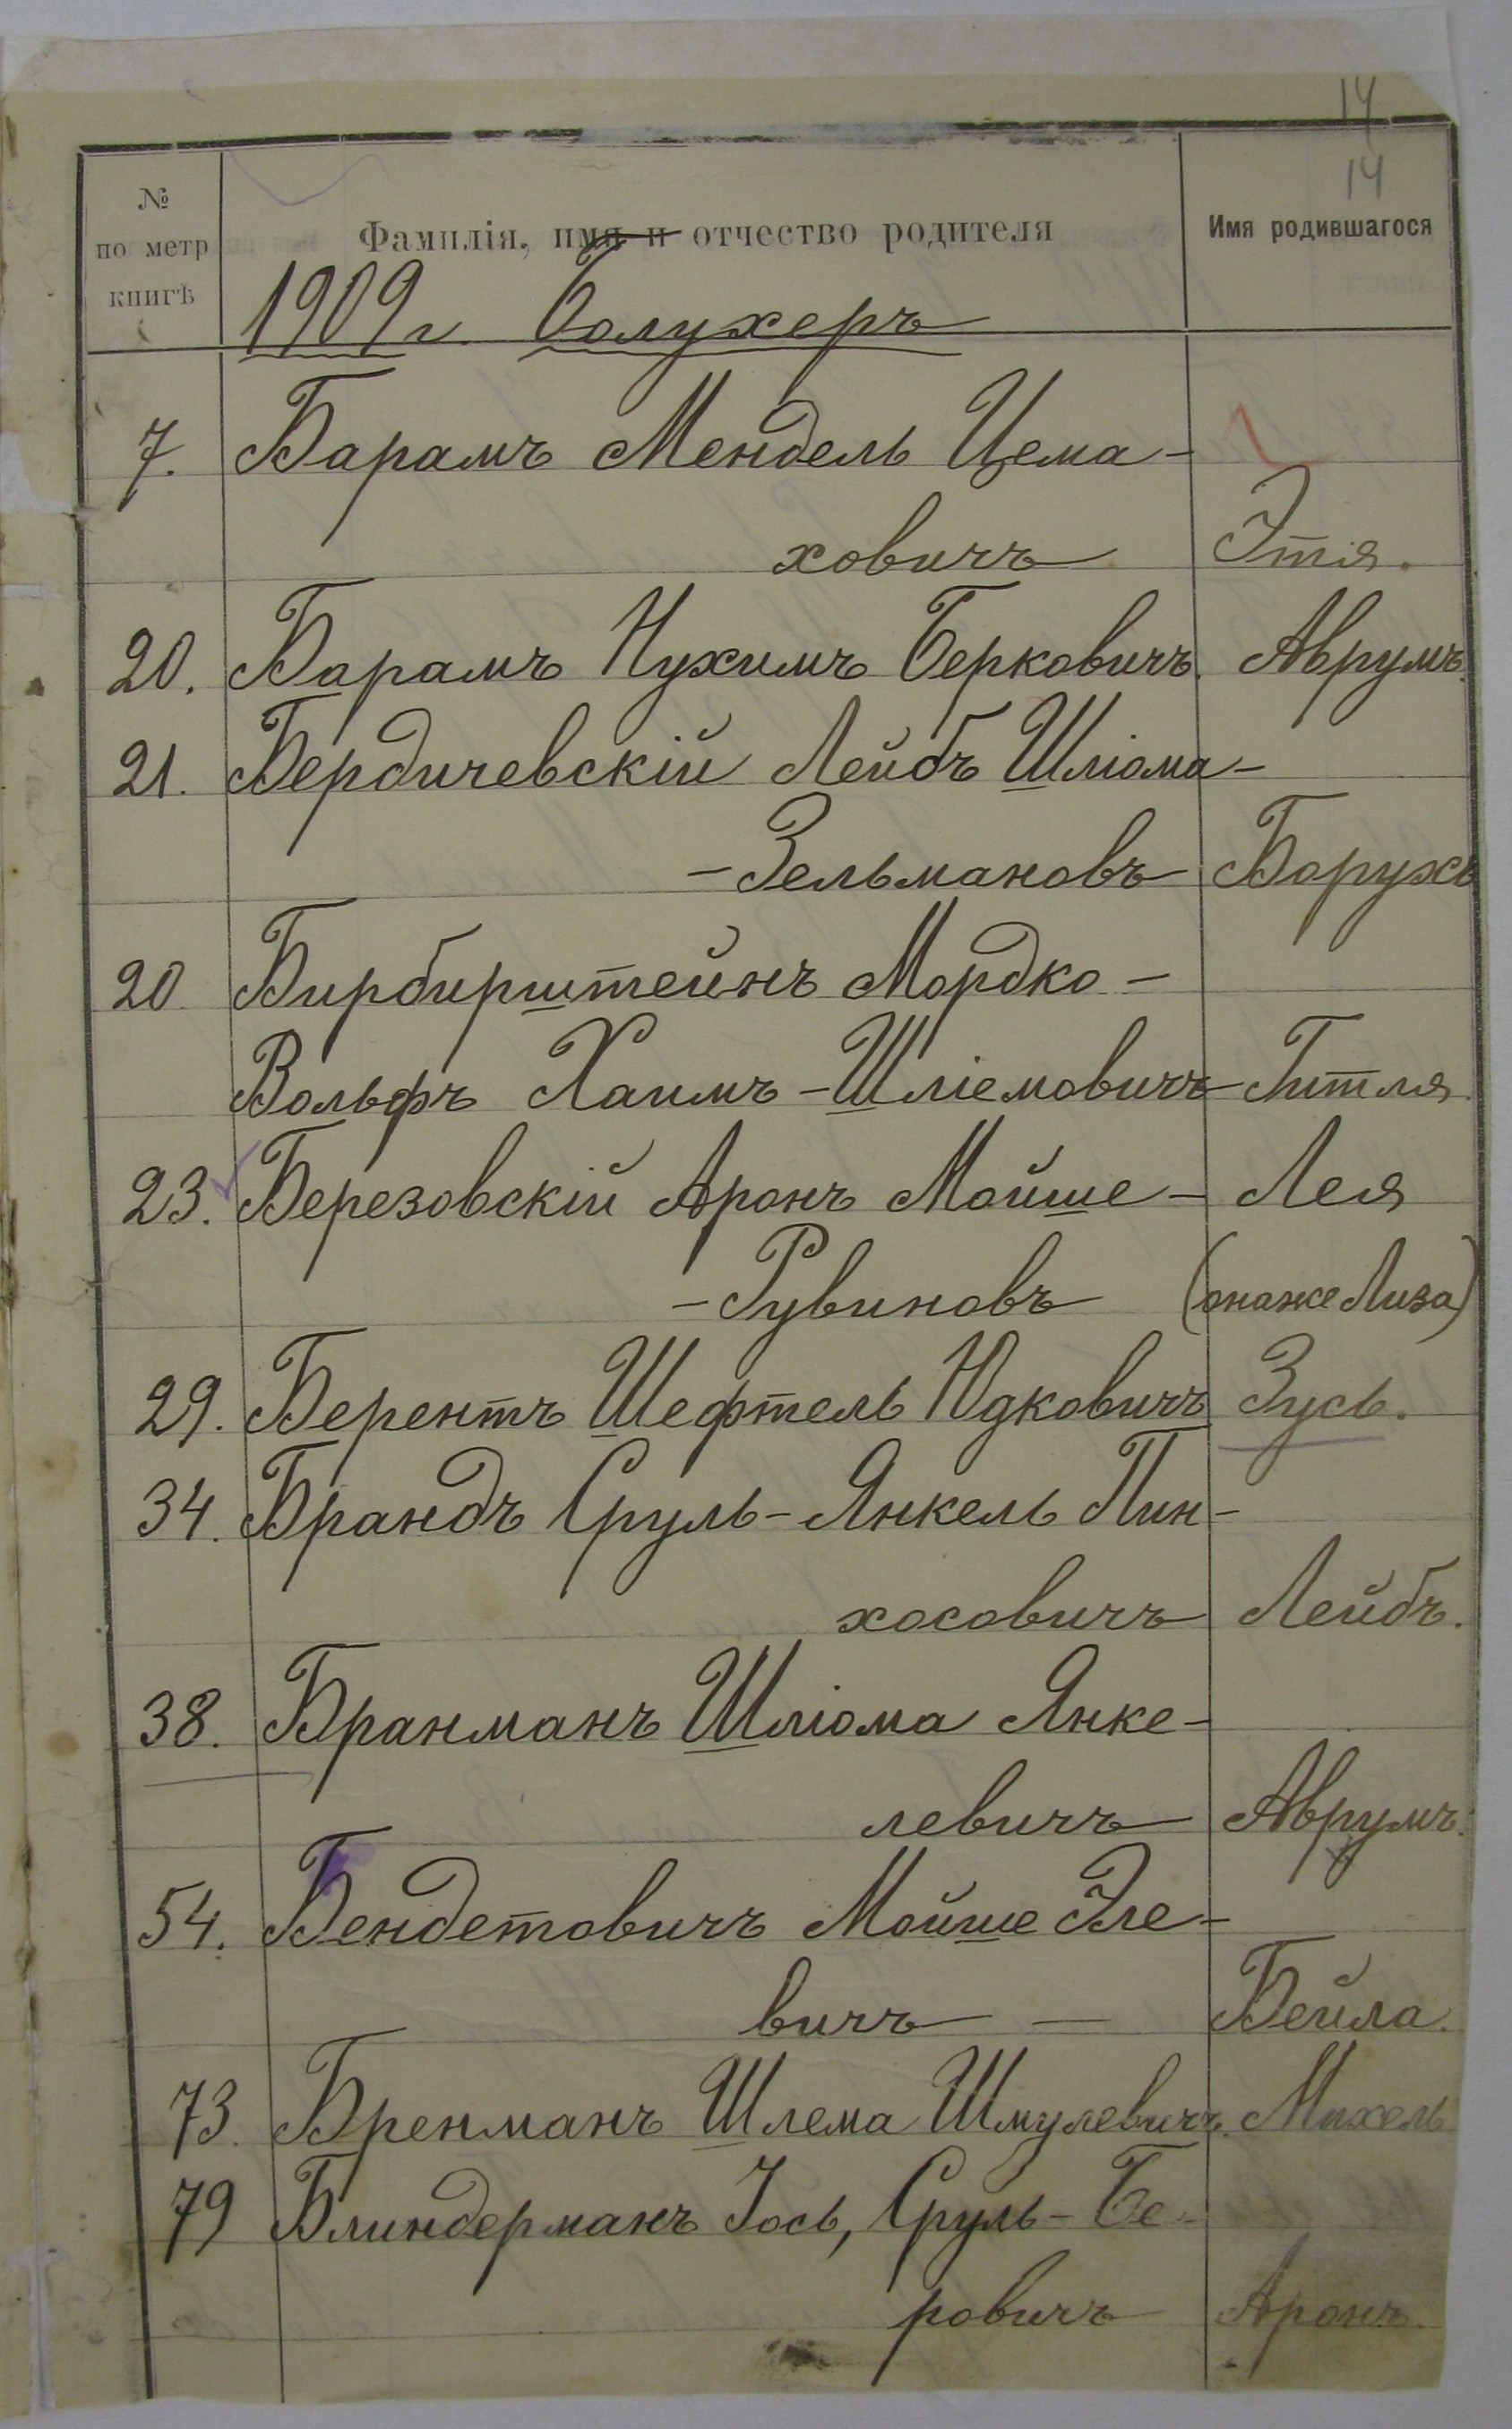 14
14
№ по метр книгѣ
Фамилія, имя и отчество родителя
Имя родившагося
1909 г. Болухеръ
7. Барамъ Мендель Цема-
ховичъ Этя.
20. Барамъ Нухимъ Берковичъ. Аврумъ.
21. Бердичевскій Лейбъ Шліома-
-Зельмановъ Борухъ
20 Бирбирштейнъ Мордко-
Вольфъ Хаимъ-Шліемовичъ Гитля.
23. Березовскій Аронъ Мойше- Лея
-Рувиновъ (онаже Лиза)
29. Берентъ Шефтель Юдковичъ Зусь.
34. Брандъ Сруль-Янкель Пин-
хосовичъ Лейбъ.
38. Бранманъ Шліома Янке-
левичъ Аврумъ.
54. Бендетовичъ Мойше Эле-
вичъ — Бейла.
73. Бренманъ Шлема Шмулевичъ. Михель
79 Блиндерманъ Іось, Сруль-Бе-
ровичъ Аронъ.